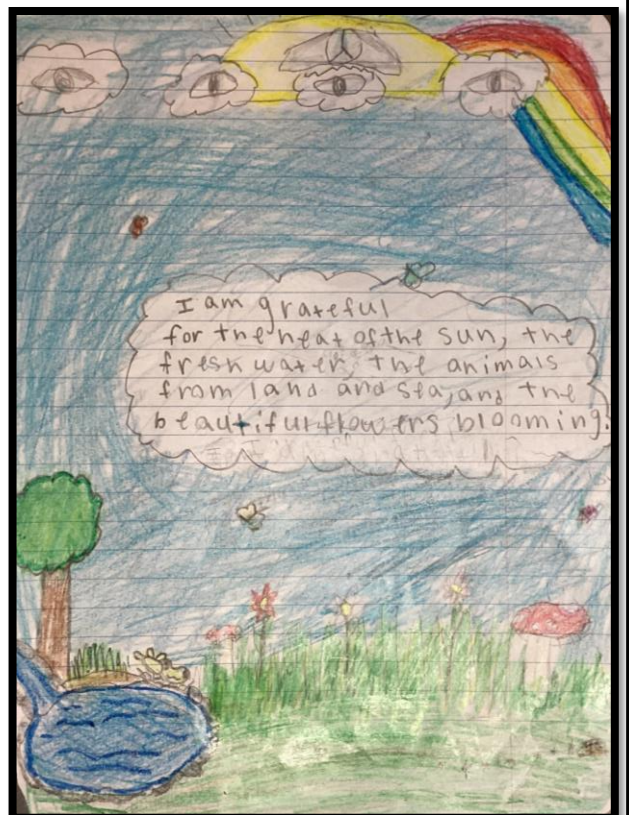 I am grateful
for the heat of the sun, the
fresh water, the animals
from land and sea, and the
beautiful flowers blooming.